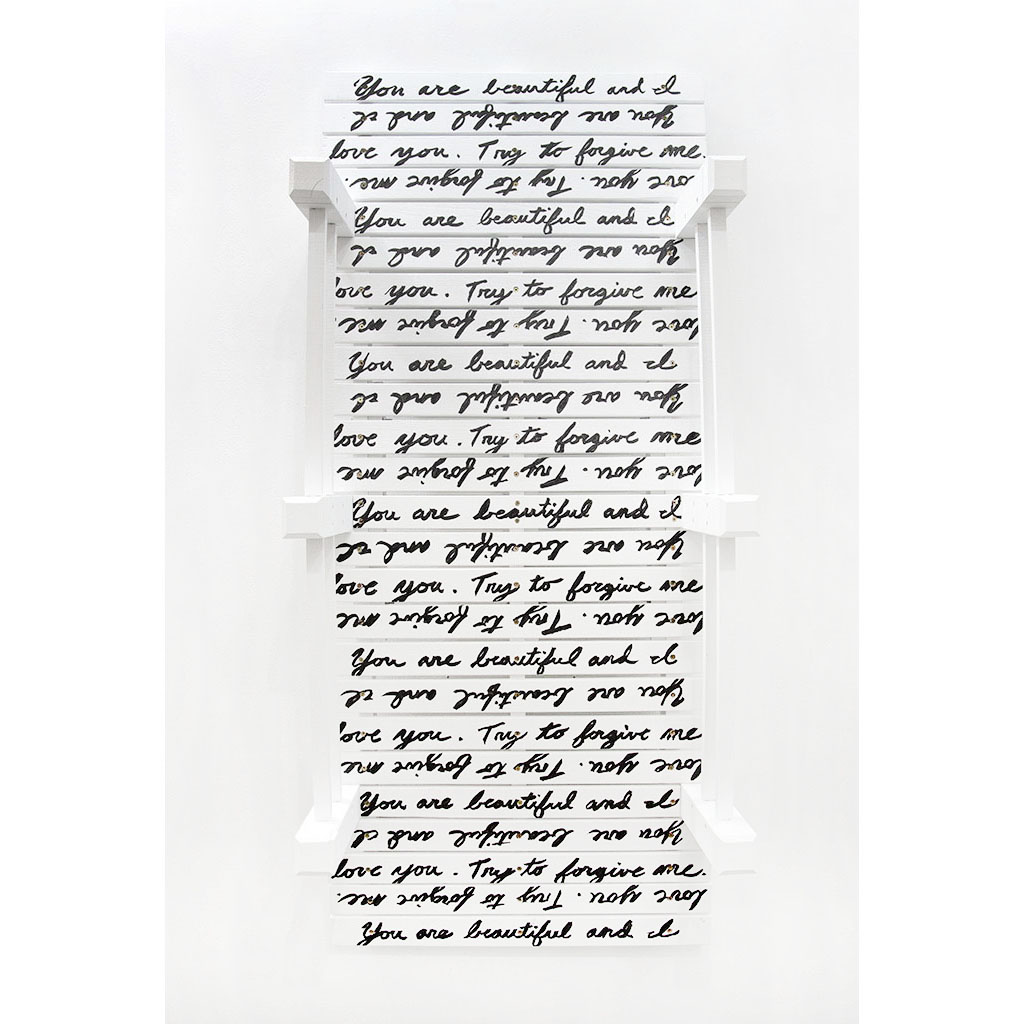 You are beautiful and I
You are beautiful and I
love you. Try to forgive me.
love you. Try to forgive me.
You are beautiful and I
You are beautiful and I
love you. Try to forgive me
love you. Try to forgive me.
You are beautiful and I
You are beautiful and I
love you. Try to forgive me
love you. Try to forgive me
You are beautiful and I
You are beautiful and I
love you. Try to forgive me
love you. Try to forgive me
You are beautiful and I
You are beautiful and I
love you. Try to forgive me
love you. Try to forgive me
You are beautiful and I
You are beautiful and I
love you. Try to forgive me.
love you. Try to forgive me.
You are beautiful and I